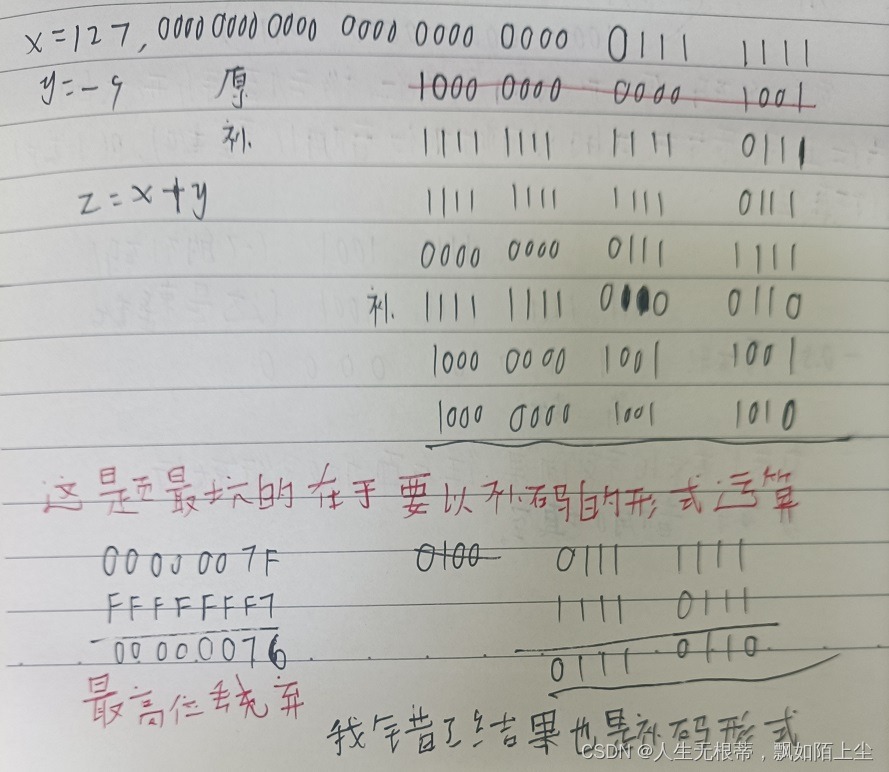 x=127, 0000 0000 0000 0000 0000 0000 0111 1111
y=-9 原 1000 0000 0000 1001
补. 1111 1111 1111 0111
z=x+y 1111 1111 1111 0111
0000 0000 0111 1111
补. 1111 1111 0000 0110
1000 0000 1001 1001
1000 0000 1001 1010
这是页最坑的在于要以补码的形式运算
0000007F 0100 0111 1111
FFFFFFF7 1111 0111
00000076 0111 0110
最高位丢弃
我错了结果也是补码形式
CSDN @人生无根蒂，飘如陌上尘